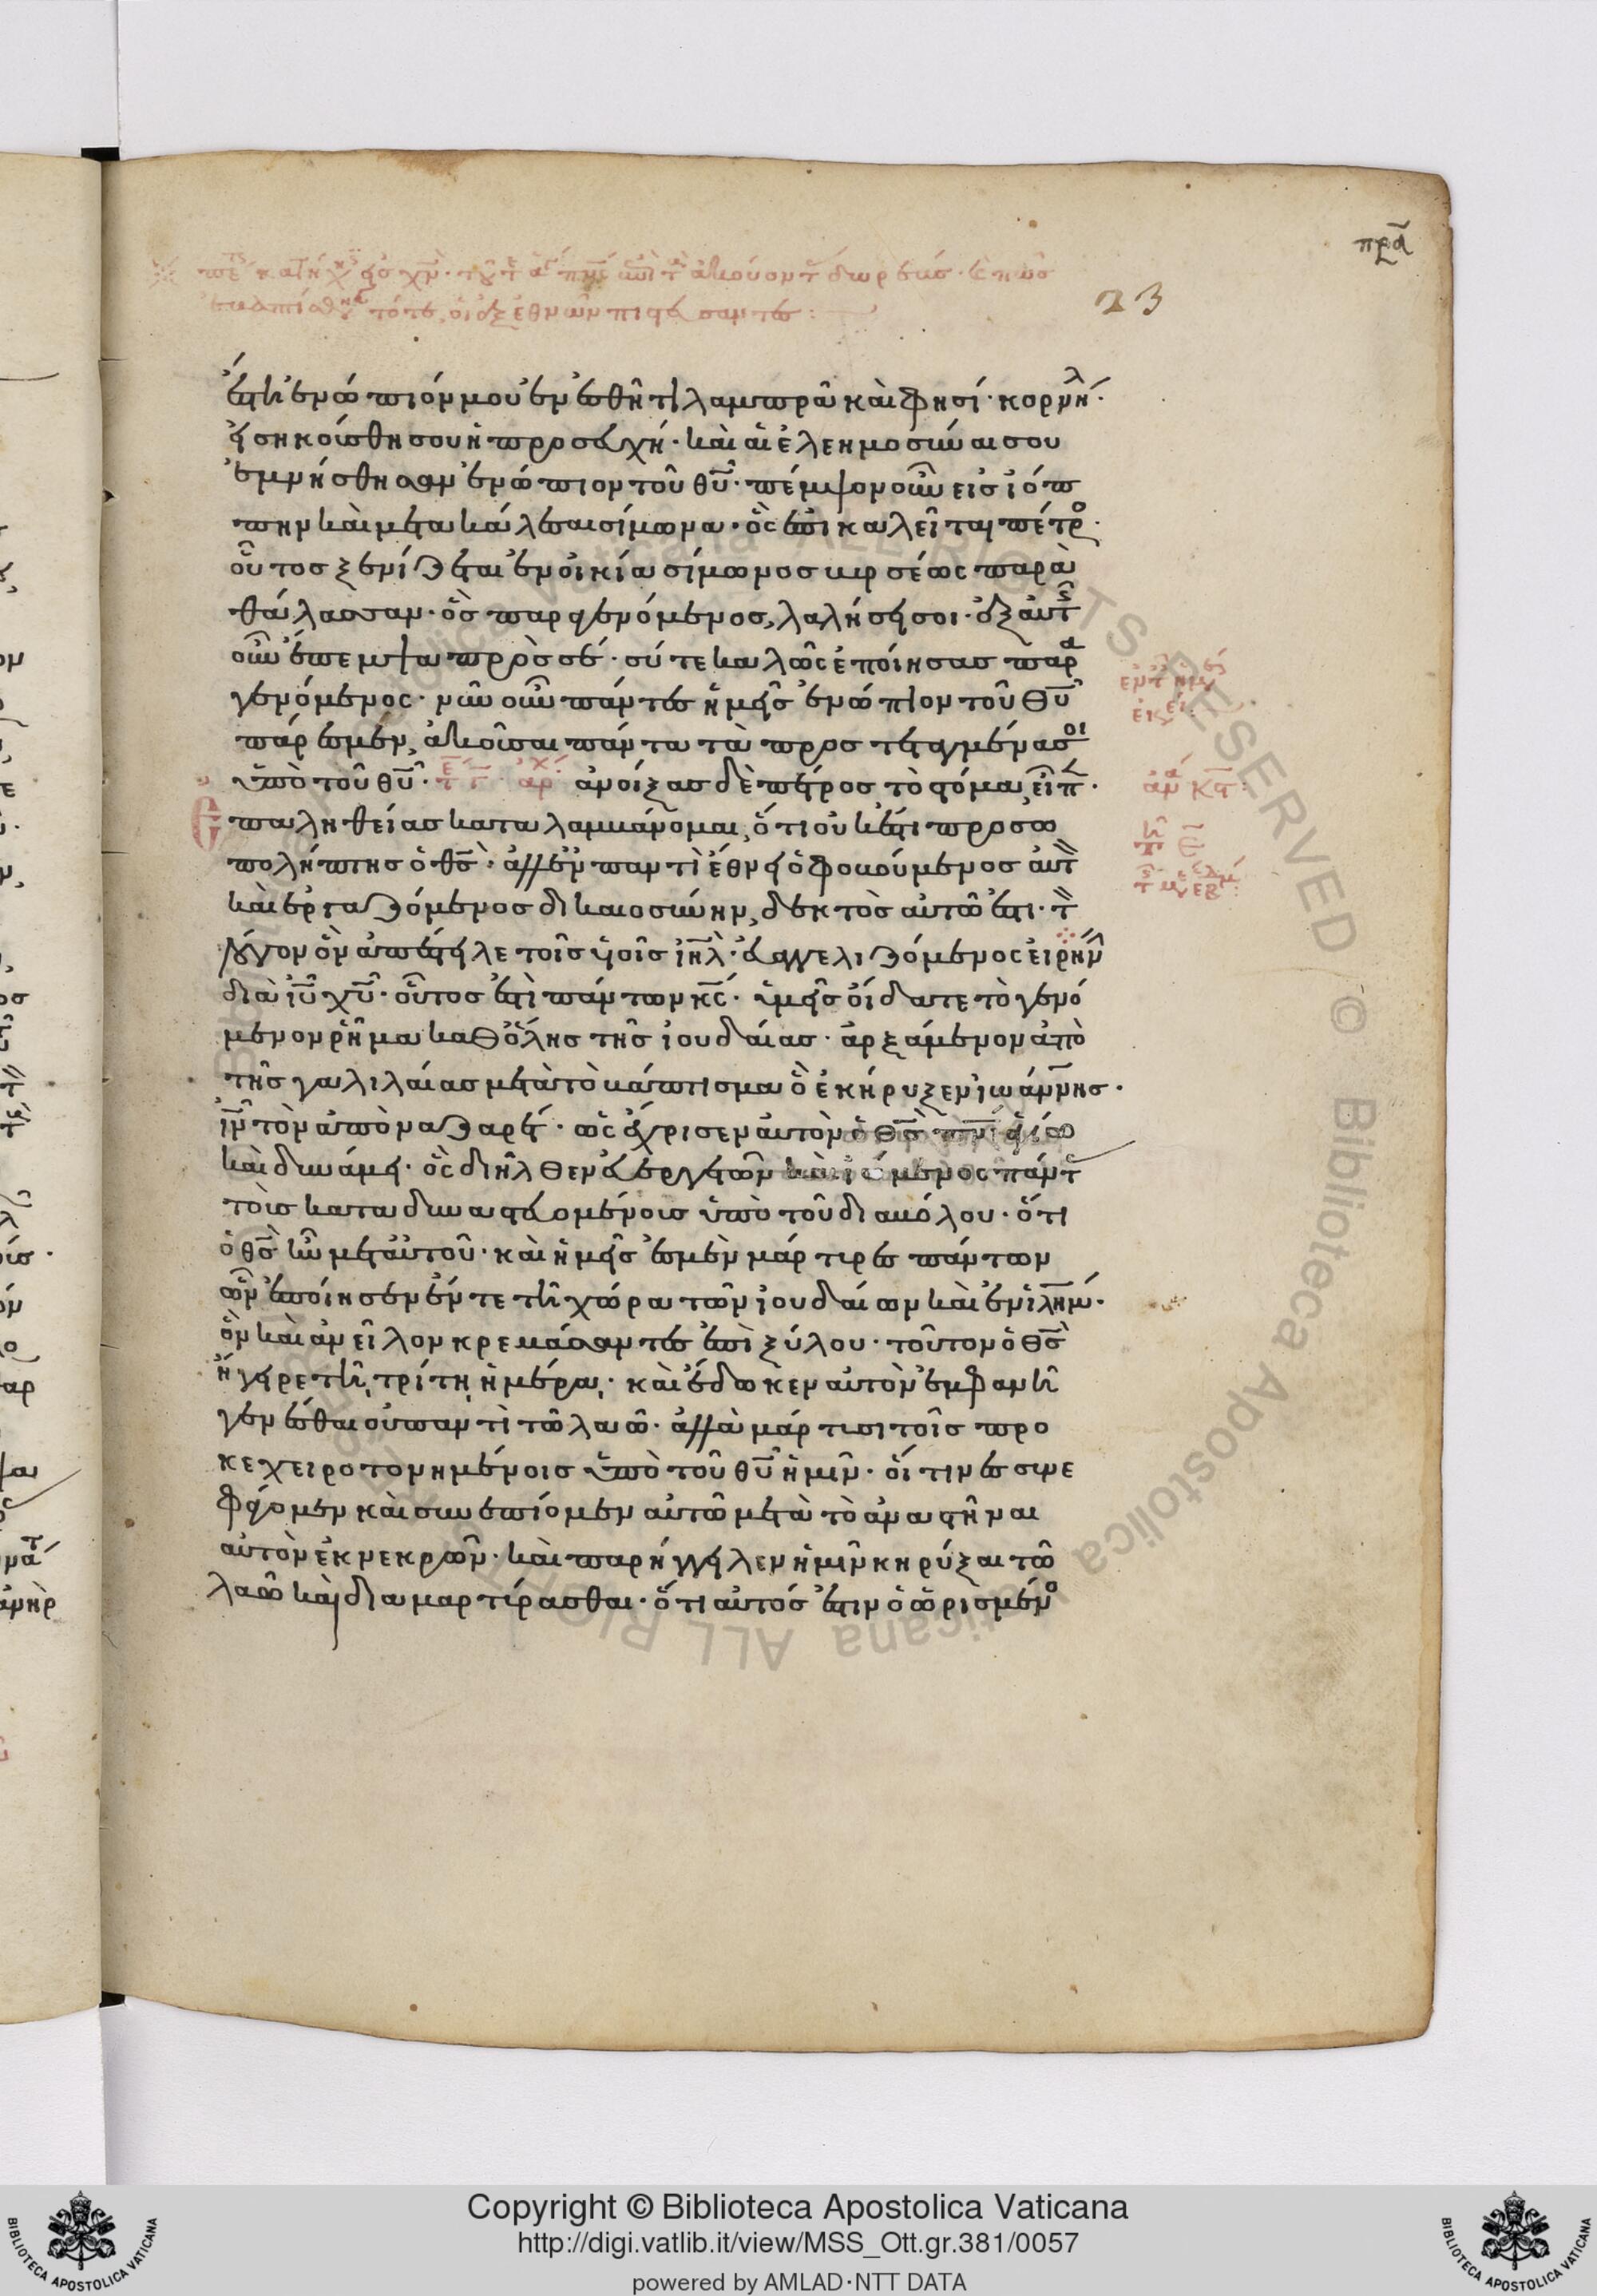 πρά
23
ἔστη ἐνώπιόν μου ἐν ἐσθῆτι λαμπρᾶ καὶ φησί· κορνή λ·
εἰσηκούσθη σου ἡ προσευχή· καὶ αἱ ἐλεημοσύναι σου
ἐμνήσθησαν ἐνώπιον τοῦ θυ· πέμψον οὖν εἰς ἰόπ
πην καὶ μετακάλεσαι σίμωνα· ὃς ἐπικαλεῖται πέτρο·
οὗτος ξενίζεται ἐν οἰκία σίμωνος βυρσέως παρὰ
θάλασσαν· ὃς παραγενόμενος, λαλήσει σοι· ἐξαυτῆς
οὖν ἔπεμψα πρὸς σέ· σύ τε καλῶς ἐποίησας παρα
γενόμενος· νῦν οὖν πάντες ἡμεῖς ἐνώπιον τοῦ θυ
πάρεσμεν, ἀκοῦσαι πάντα τὰ προστεταγμένα σοι
ὑπὸ τοῦ θυ· ἀνοίξας δὲ πέτρος τὸ στόμα, εἶπ·
Επ αληθείας καταλαμβάνομαι, ὅτι οὐκ ἔστι προσω
πολήπτης ὁ θς· ἀλλ' ἐν παντὶ ἔθνει ὁ φοβούμενος αὐτ
καὶ ἐργαζόμενος δικαιοσύνην, δεκτὸς αὐτῶ ἐστι· τ
λόγον ὃν ἀπέστειλε τοῖς υἱοῖς ιηλ· εὐαγγελιζόμενος εἰρήν
διὰ ιυ χυ· οὗτος ἐστὶ πάντων κς· ὑμεῖς οἴδατε τὸ γενό
μενον ῥῆμα καθ' ὅλης τῆς ἰουδαίας· ἀρξάμενον ἀπὸ
τῆς γαλιλαίας μετὰ τὸ βάπτισμα ὃ ἐκήρυξεν ἰωάννης·
ιν τὸν ἀπὸ ναζαρέτ· ὡς ἔχρισεν αὐτὸν ὁ θς πνι ἁγίω
καὶ δυνάμει· ὃς διῆλθεν εὐεργετῶν καὶ ἰώμενος πάντ
τοὺς καταδυναστευομένους ὑπὸ τοῦ διαβόλου· ὅτι
ὁ θς ἦν μετ' αὐτοῦ· καὶ ἡμεῖς ἐσμὲν μάρτυρες πάντων
ὧν ἐποίησεν ἔν τε τῆ χώρα τῶν ἰουδαίων καὶ ἐν ἱλημ·
ὃν καὶ ἀνεῖλον κρεμάσαντες ἐπὶ ξύλου· τοῦτον ὁ θς
ἤγειρε τῆ τρίτη ἡμέρα· καὶ ἔδωκεν αὐτὸν ἐμφανῆ
γενέσθαι οὐ παντὶ τῶ λαῶ· ἀλλὰ μάρτυσι τοῖς προ
κεχειροτονημένοις ὑπὸ τοῦ θυ ἡμῖν· οἵτινες συνε
φάγομεν καὶ συνεπίομεν αὐτῶ μετὰ τὸ ἀναστῆναι
αὐτὸν ἐκ νεκρῶν· καὶ παρήγγειλεν ἡμῖν κηρύξαι τῶ
λαῶ καὶ διαμαρτύρασθαι· ὅτι αὐτός ἐστιν ὁ ὡρισμένο
Copyright © Biblioteca Apostolica Vaticana
http://digi.vatlib.it/view/MSS_Ott.gr.381/0057
powered by AMLAD·NTT DATA